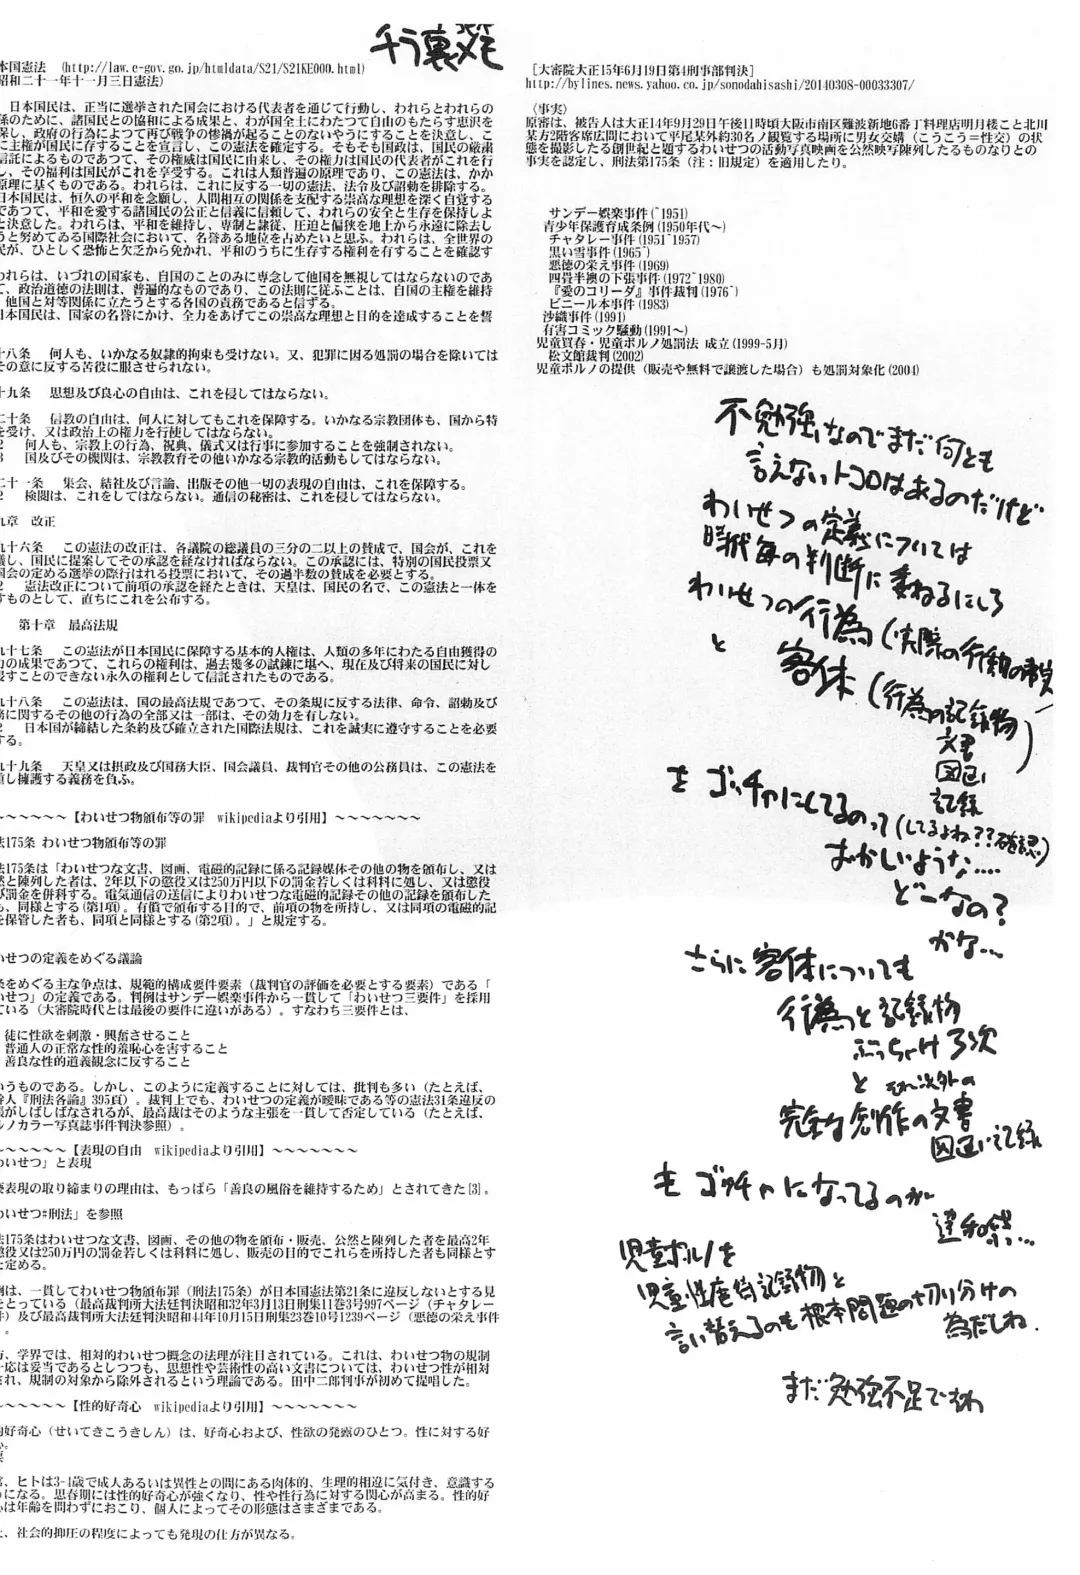 チラ裏メモ
本国憲法 (http://law.e-gov.go.jp/htmldata/S21/S21KE000.html)
昭和二十一年十一月三日憲法)
日本国民は、正当に選挙された国会における代表者を通じて行動し、われらとわれらの
係のために、諸国民との協和による成果と、わが国全土にわたつて自由のもたらす恵沢を
保し、政府の行為によつて再び戦争の惨禍が起ることのないやうにすることを決意し、こ
に主権が国民に存することを宣言し、この憲法を確定する。そもそも国政は、国民の厳粛
信託によるものであつて、その権威は国民に由来し、その権力は国民の代表者がこれを行
し、その福利は国民がこれを享受する。これは人類普遍の原理であり、この憲法は、かか
原理に基くものである。われらは、これに反する一切の憲法、法令及び詔勅を排除する。
日本国民は、恒久の平和を念願し、人間相互の関係を支配する崇高な理想を深く自覚する
であつて、平和を愛する諸国民の公正と信義に信頼して、われらの安全と生存を保持しよ
と決意した。われらは、平和を維持し、専制と隷従、圧迫と偏狭を地上から永遠に除去し
うと努めてゐる国際社会において、名誉ある地位を占めたいと思ふ。われらは、全世界の
民が、ひとしく恐怖と欠乏から免かれ、平和のうちに生存する権利を有することを確認す
われらは、いづれの国家も、自国のことのみに専念して他国を無視してはならないのであ
て、政治道徳の法則は、普遍的なものであり、この法則に従ふことは、自国の主権を維持
、他国と対等関係に立たうとする各国の責務であると信ずる。
日本国民は、国家の名誉にかけ、全力をあげてこの崇高な理想と目的を達成することを誓
十八条 何人も、いかなる奴隷的拘束も受けない。又、犯罪に因る処罰の場合を除いては
その意に反する苦役に服させられない。
十九条 思想及び良心の自由は、これを侵してはならない。
二十条 信教の自由は、何人に対してもこれを保障する。いかなる宗教団体も、国から特
を受け、又は政治上の権力を行使してはならない。
2 何人も、宗教上の行為、祝典、儀式又は行事に参加することを強制されない。
3 国及びその機関は、宗教教育その他いかなる宗教的活動もしてはならない。
二十一条 集会、結社及び言論、出版その他一切の表現の自由は、これを保障する。
2 検閲は、これをしてはならない。通信の秘密は、これを侵してはならない。
九章 改正
九十六条 この憲法の改正は、各議院の総議員の三分の二以上の賛成で、国会が、これを
議し、国民に提案してその承認を経なければならない。この承認には、特別の国民投票又
国会の定める選挙の際行はれる投票において、その過半数の賛成を必要とする。
2 憲法改正について前項の承認を経たときは、天皇は、国民の名で、この憲法と一体を
すものとして、直ちにこれを公布する。
第十章 最高法規
九十七条 この憲法が日本国民に保障する基本的人権は、人類の多年にわたる自由獲得の
力の成果であつて、これらの権利は、過去幾多の試錬に堪へ、現在及び将来の国民に対し
侵すことのできない永久の権利として信託されたものである。
九十八条 この憲法は、国の最高法規であつて、その条規に反する法律、命令、詔勅及び
務に関するその他の行為の全部又は一部は、その効力を有しない。
2 日本国が締結した条約及び確立された国際法規は、これを誠実に遵守することを必要
する。
九十九条 天皇又は摂政及び国務大臣、国会議員、裁判官その他の公務員は、この憲法を
重し擁護する義務を負ふ。
~~~~~~【わいせつ物頒布等の罪 wikipediaより引用】~~~~~~~
法175条 わいせつ物頒布等の罪
法175条は「わいせつな文書、図画、電磁的記録に係る記録媒体その他の物を頒布し、又は
然と陳列した者は、2年以下の懲役又は250万円以下の罰金若しくは科料に処し、又は懲役
び罰金を併科する。電気通信の送信によりわいせつな電磁的記録その他の記録を頒布した
も、同様とする(第1項)。有償で頒布する目的で、前項の物を所持し、又は同項の電磁的記
を保管した者も、同項と同様とする(第2項)。」と規定する。
いせつの定義をめぐる議論
条をめぐる主な争点は、規範的構成要件要素(裁判官の評価を必要とする要素)である「
いせつ」の定義である。判例はサンデー娯楽事件から一貫して「わいせつ三要件」を採用
ている(大審院時代とは最後の要件に違いがある)。すなわち三要件とは、
徒に性欲を刺激・興奮させること
普通人の正常な性的羞恥心を害すること
善良な性的道義観念に反すること
いうものである。しかし、このように定義することに対しては、批判も多い(たとえば、
幹人『刑法各論』395頁)。裁判上でも、わいせつの定義が曖昧である等の憲法31条違反の
張がしばしばなされるが、最高裁はそのような主張を一貫して否定している(たとえば、
ルノカラー写真誌事件判決参照)。
~~~~~~【表現の自由 wikipediaより引用】~~~~~~~
わいせつ」と表現
褻表現の取り締まりの理由は、もっぱら「善良の風俗を維持するため」とされてきた[3]。
わいせつ#刑法」を参照
法175条はわいせつな文書、図画、その他の物を頒布・販売、公然と陳列した者を最高2年
懲役又は250万円の罰金若しくは科料に処し、販売の目的でこれらを所持した者も同様とす
と定める。
例は、一貫してわいせつ物頒布罪(刑法175条)が日本国憲法第21条に違反しないとする見
をとっている(最高裁判所大法廷判決昭和32年3月13日刑集11巻3号997ページ(チャタレー
件)及び最高裁判所大法廷判決昭和44年10月15日刑集23巻10号1239ページ(悪徳の栄え事件
。
方、学界では、相対的わいせつ概念の法理が注目されている。これは、わいせつ物の規制
一応は妥当であるとしつつも、思想性や芸術性の高い文書については、わいせつ性が相対
され、規制の対象から除外されるという理論である。田中二郎判事が初めて提唱した。
~~~~~~【性的好奇心 wikipediaより引用】~~~~~~~
的好奇心(せいてきこうきしん)は、好奇心および、性欲の発露のひとつ。性に対する好
心。
要
常、ヒトは3-4歳で成人あるいは異性との間にある肉体的、生理的相違に気付き、意識する
うになる。思春期には性的好奇心が強くなり、性や性行為に対する関心が高まる。性的好
心は年齢を問わずにおこり、個人によってその形態はさまざまである。
た、社会的抑圧の程度によっても発現の仕方が異なる。
[大審院大正15年6月19日第4刑事部判決]
http://bylines.news.yahoo.co.jp/sonodahisashi/20140308-00033307/
〈事実〉
原審は、被告人は大正14年9月29日午後11時頃大阪市南区難波新地6番丁料理店明月楼こと北川
某方2階客席広間において平尾某外約30名ノ観覧する場所に男女交媾(こうこう=性交)の状
態を撮影したる創世紀と題するわいせつの活動写真映画を公然映写陳列したるものなりとの
事実を認定し、刑法第175条(注:旧規定)を適用したり。
サンデー娯楽事件(~1951)
青少年保護育成条例(1950年代~)
チャタレー事件(1951~1957)
黒い雪事件(1965~)
悪徳の栄え事件(1969)
四畳半襖の下張事件(1972~1980)
『愛のコリーダ』事件裁判(1976~)
ビニール本事件(1983)
沙織事件(1991)
有害コミック騒動(1991~)
児童買春・児童ポルノ処罰法 成立(1999-5月)
松文館裁判(2002)
児童ポルノの提供(販売や無料で譲渡した場合)も処罰対象化(2004)
不勉強なのでまだ何とも
言えないトコロはあるのだけど
わいせつの定義については
時代毎の判断に委ねるにしろ
わいせつの行為(実際の行動の事実
と 客体(行為の記録物)
文書
図画
記録
をゴッチャにしてるのって(してるよね??確認)
おかしいような....
どーなの?
かな...
さらに客体についても
行為と記録物
ぶっちゃけ3次
と それ以外の
完全な創作の文書
図画い記録
もゴッチャになってるのが
違和感...
児童ポルノを
児童性虐待記録物と
言い替えるのも根本問題の切り分けの
為だしね.
まだ勉強不足ですわ